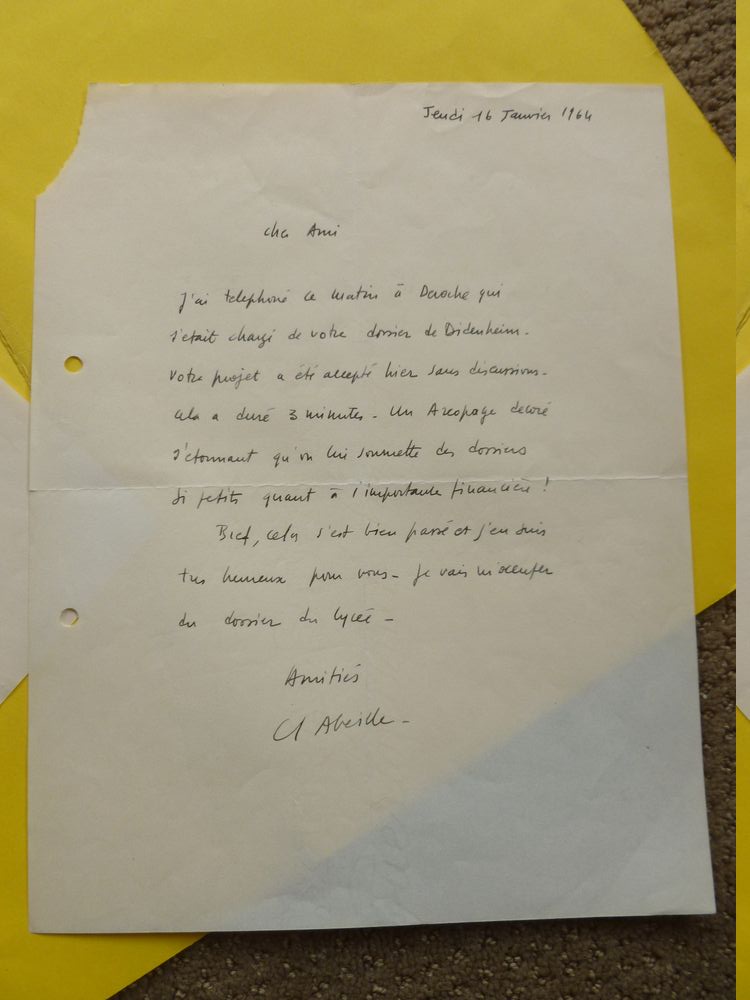 Jeudi 16 Janvier 1964
Cher Ami
J'ai telephoné ce matin à Deroche qui
s'etait chargé de votre dossier de Didenheim.
Votre projet a été accepté hier sans discussions.
Cela a duré 3 minutes. Un Areopage decoré
s'etonnant qu'on lui soumette des dossiers
si petits quant à l'importance financière !
Bref, cela s'est bien passé et j'en suis
très heureux pour vous - Je vais m'occuper
du dossier du lycée -
Amitiés
Cl Abeille -